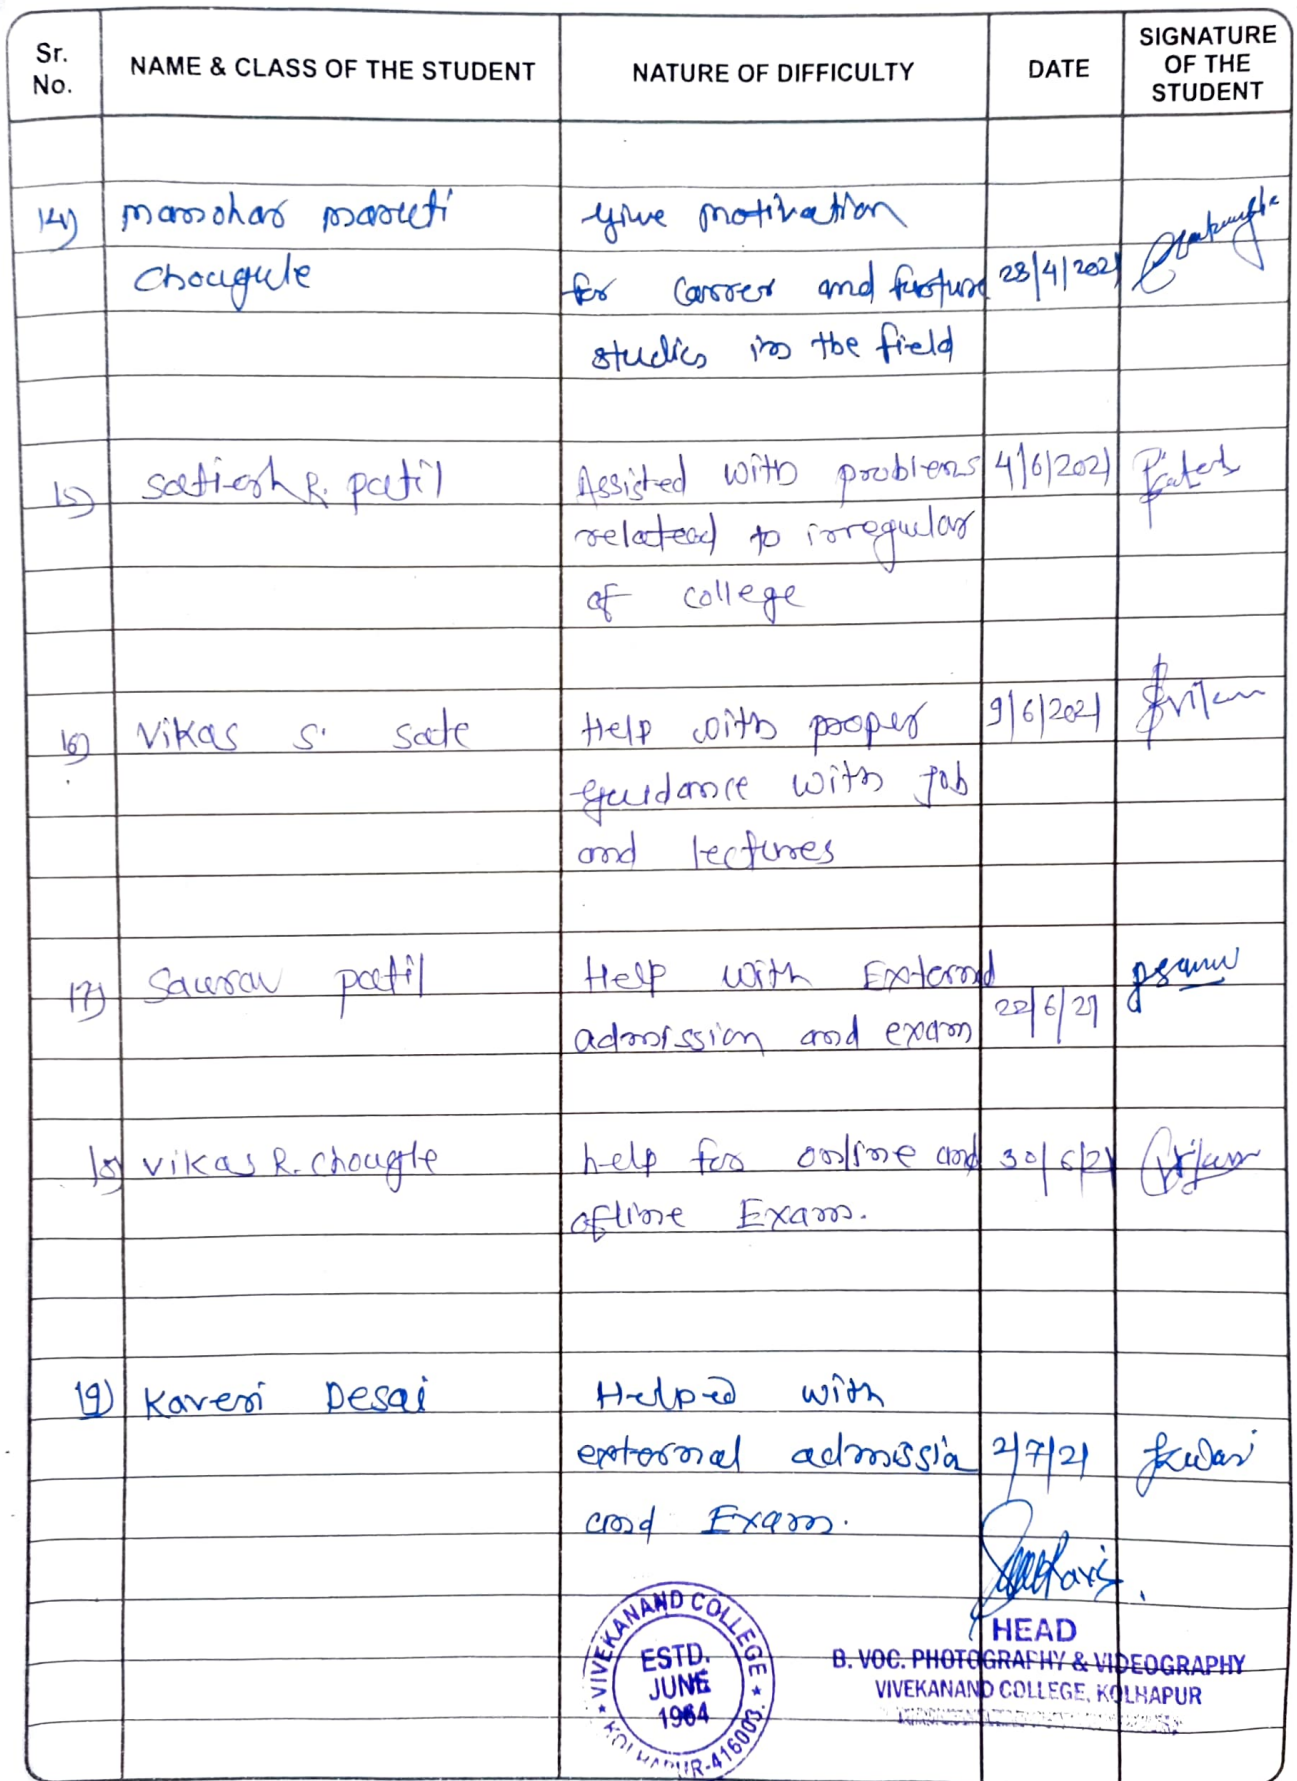 Sr. No.
NAME & CLASS OF THE STUDENT
NATURE OF DIFFICULTY
DATE
SIGNATURE OF THE STUDENT
14) Manohar Maruti
Give motivation
Chougule
for Carrer and furture 23/4/2021
studies in the field
15) Satiesh R. patil
Assisted with problems 4/6/2021
relatead to irregular
of college
16) Vikas S. Sate
Help with proper 9/6/2021
guidance with Job
and lectures
17) Saurav patil
Help with External
admission and exam 22/6/21
18) Vikas R. Chougle
help for online and 30/6/21
ofline Exam.
19) Kaveri Desai
Helped with
external admissin 2/7/21
and Exam.
VIVEKANAND COLLEGE
KOLHAPUR-416003.
ESTD.
JUNE
1964
HEAD
B. VOC. PHOTOGRAPHY & VIDEOGRAPHY
VIVEKANAND COLLEGE, KOLHAPUR